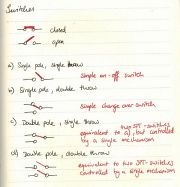 Switches
closed
open
a) Single pole, single throw
Simple on-off switch
b) Single pole, double throw
Simple change over switch
c) Double pole, single throw
equivalent to two SPST-switches
a), but controlled
by a single mechanism
d) Double pole, double throw
equivalent to two SPDT-switches
controlled by a single mechanism